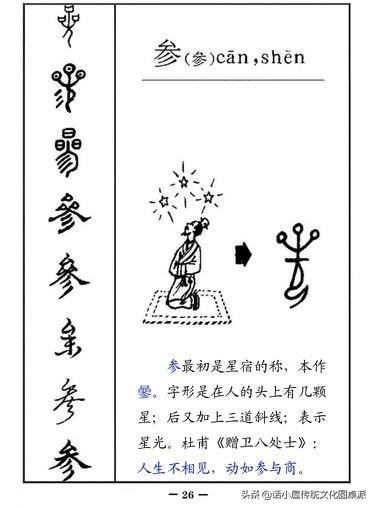 參
參
參
参
参(參)cān,shēn
参最初是星宿的称，本作
曑。字形是在人的头上有几颗
星；后又加上三道斜线；表示
星光。杜甫《赠卫八处士》：
人生不相见，动如参与商。
— 26 —
头条 @诺小屋传统文化圆桌派